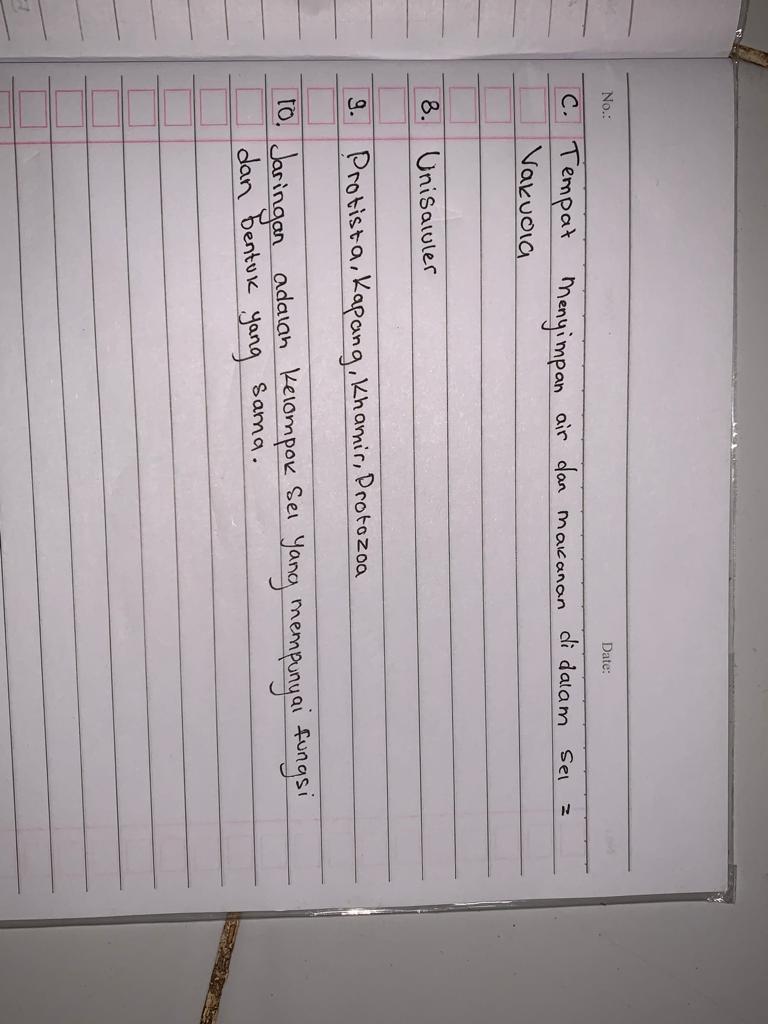 No.:
Date:
C. Tempat menyimpan air dan makanan di dalam sel =
Vakuola
8. Unisaluler
9. Protista, Kapang, Khamir, Protozoa
10. Jaringan adalah kelompok sel yang mempunyai fungsi
dan bentuk yang sama.